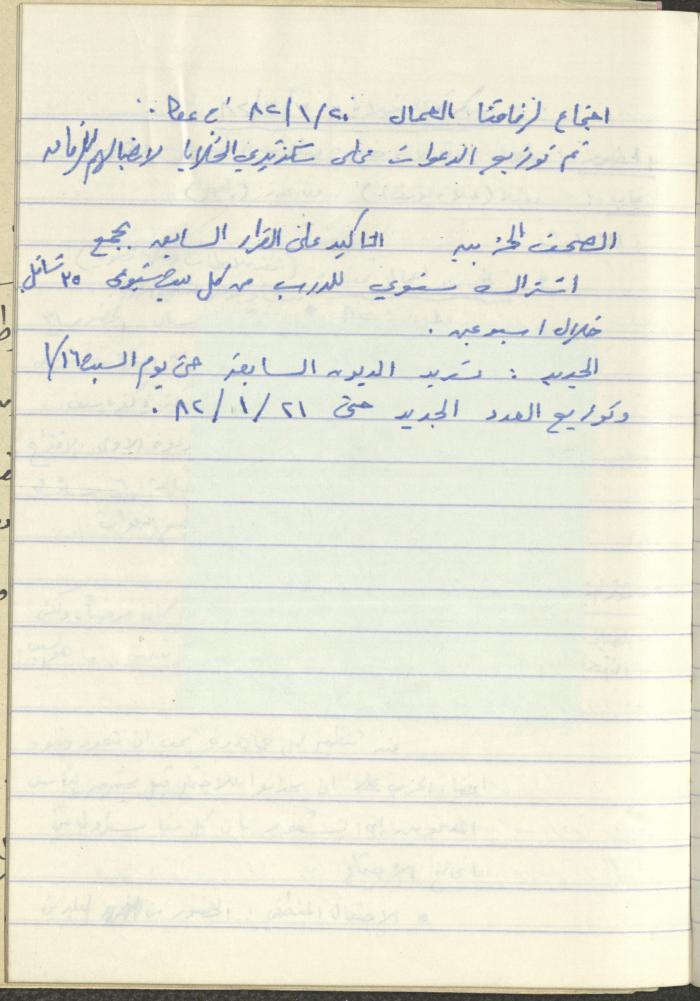 اجتماع لرفاقنا العمال ٨٢/١/٢٠ في عكا :
تم توزيع الدعوات على سكرتيري الخلايا لايصالهم للرفاق
الصحف الحزبيه التاكيد على القرار السابق بجمع
اشتراك سنوي للدرب من كل ٣٥ شاقل
خلال اسبوعين .
الجديد : تسديد الديون السابقة حتى يوم السبت ١/١٦
وتوزيع العدد الجديد حتى ٨٢/١/٢١ .